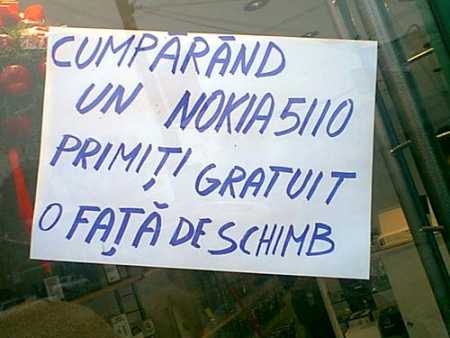 CUMPĂRÂND
UN NOKIA 5110
PRIMIȚI GRATUIT
O FAȚĂ DE SCHIMB